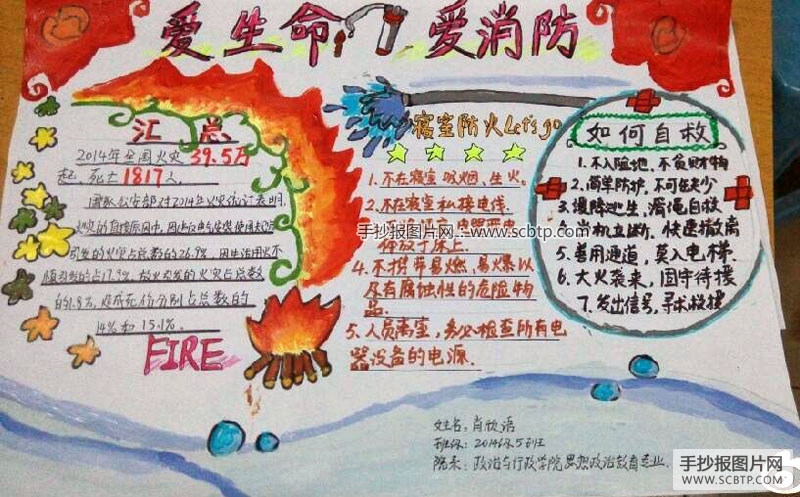 爱生命 爱消防
汇总
2014年全国火灾39.5万
起、死亡1817人
国家公安部对2014年火灾统计表明
引发的火灾占总数的26.9%,因生活用火不
慎引发的占17.9%,放火引发的火灾占总数
的1.8%,
占总数的
14%和15.1%.
FIRE
寝室防火Let's go
1.不在寝室吸烟、生火.
2.不在寝室私接电线.
体放于床上.
4.不携带易燃、易爆以
及有腐蚀性的危险物
品.
5.人员离室,务必检查所有电
器设备的电源.
如何自救
1.不入险地、不贪财物
2.简单防护,不可缺少
3.缓降逃生,滑绳自救
4.当机立断,快速撤离
5.善用通道,莫入电梯.
6.大火袭来,固守待援
7.发出信号,寻求救援
手抄报图片网 www.scbtp.com
姓名:肖欣语
班级:2014级5班
院系:政治与行政学院思想政治教育专业.
手抄报图片网
WWW.SCBTP.COM